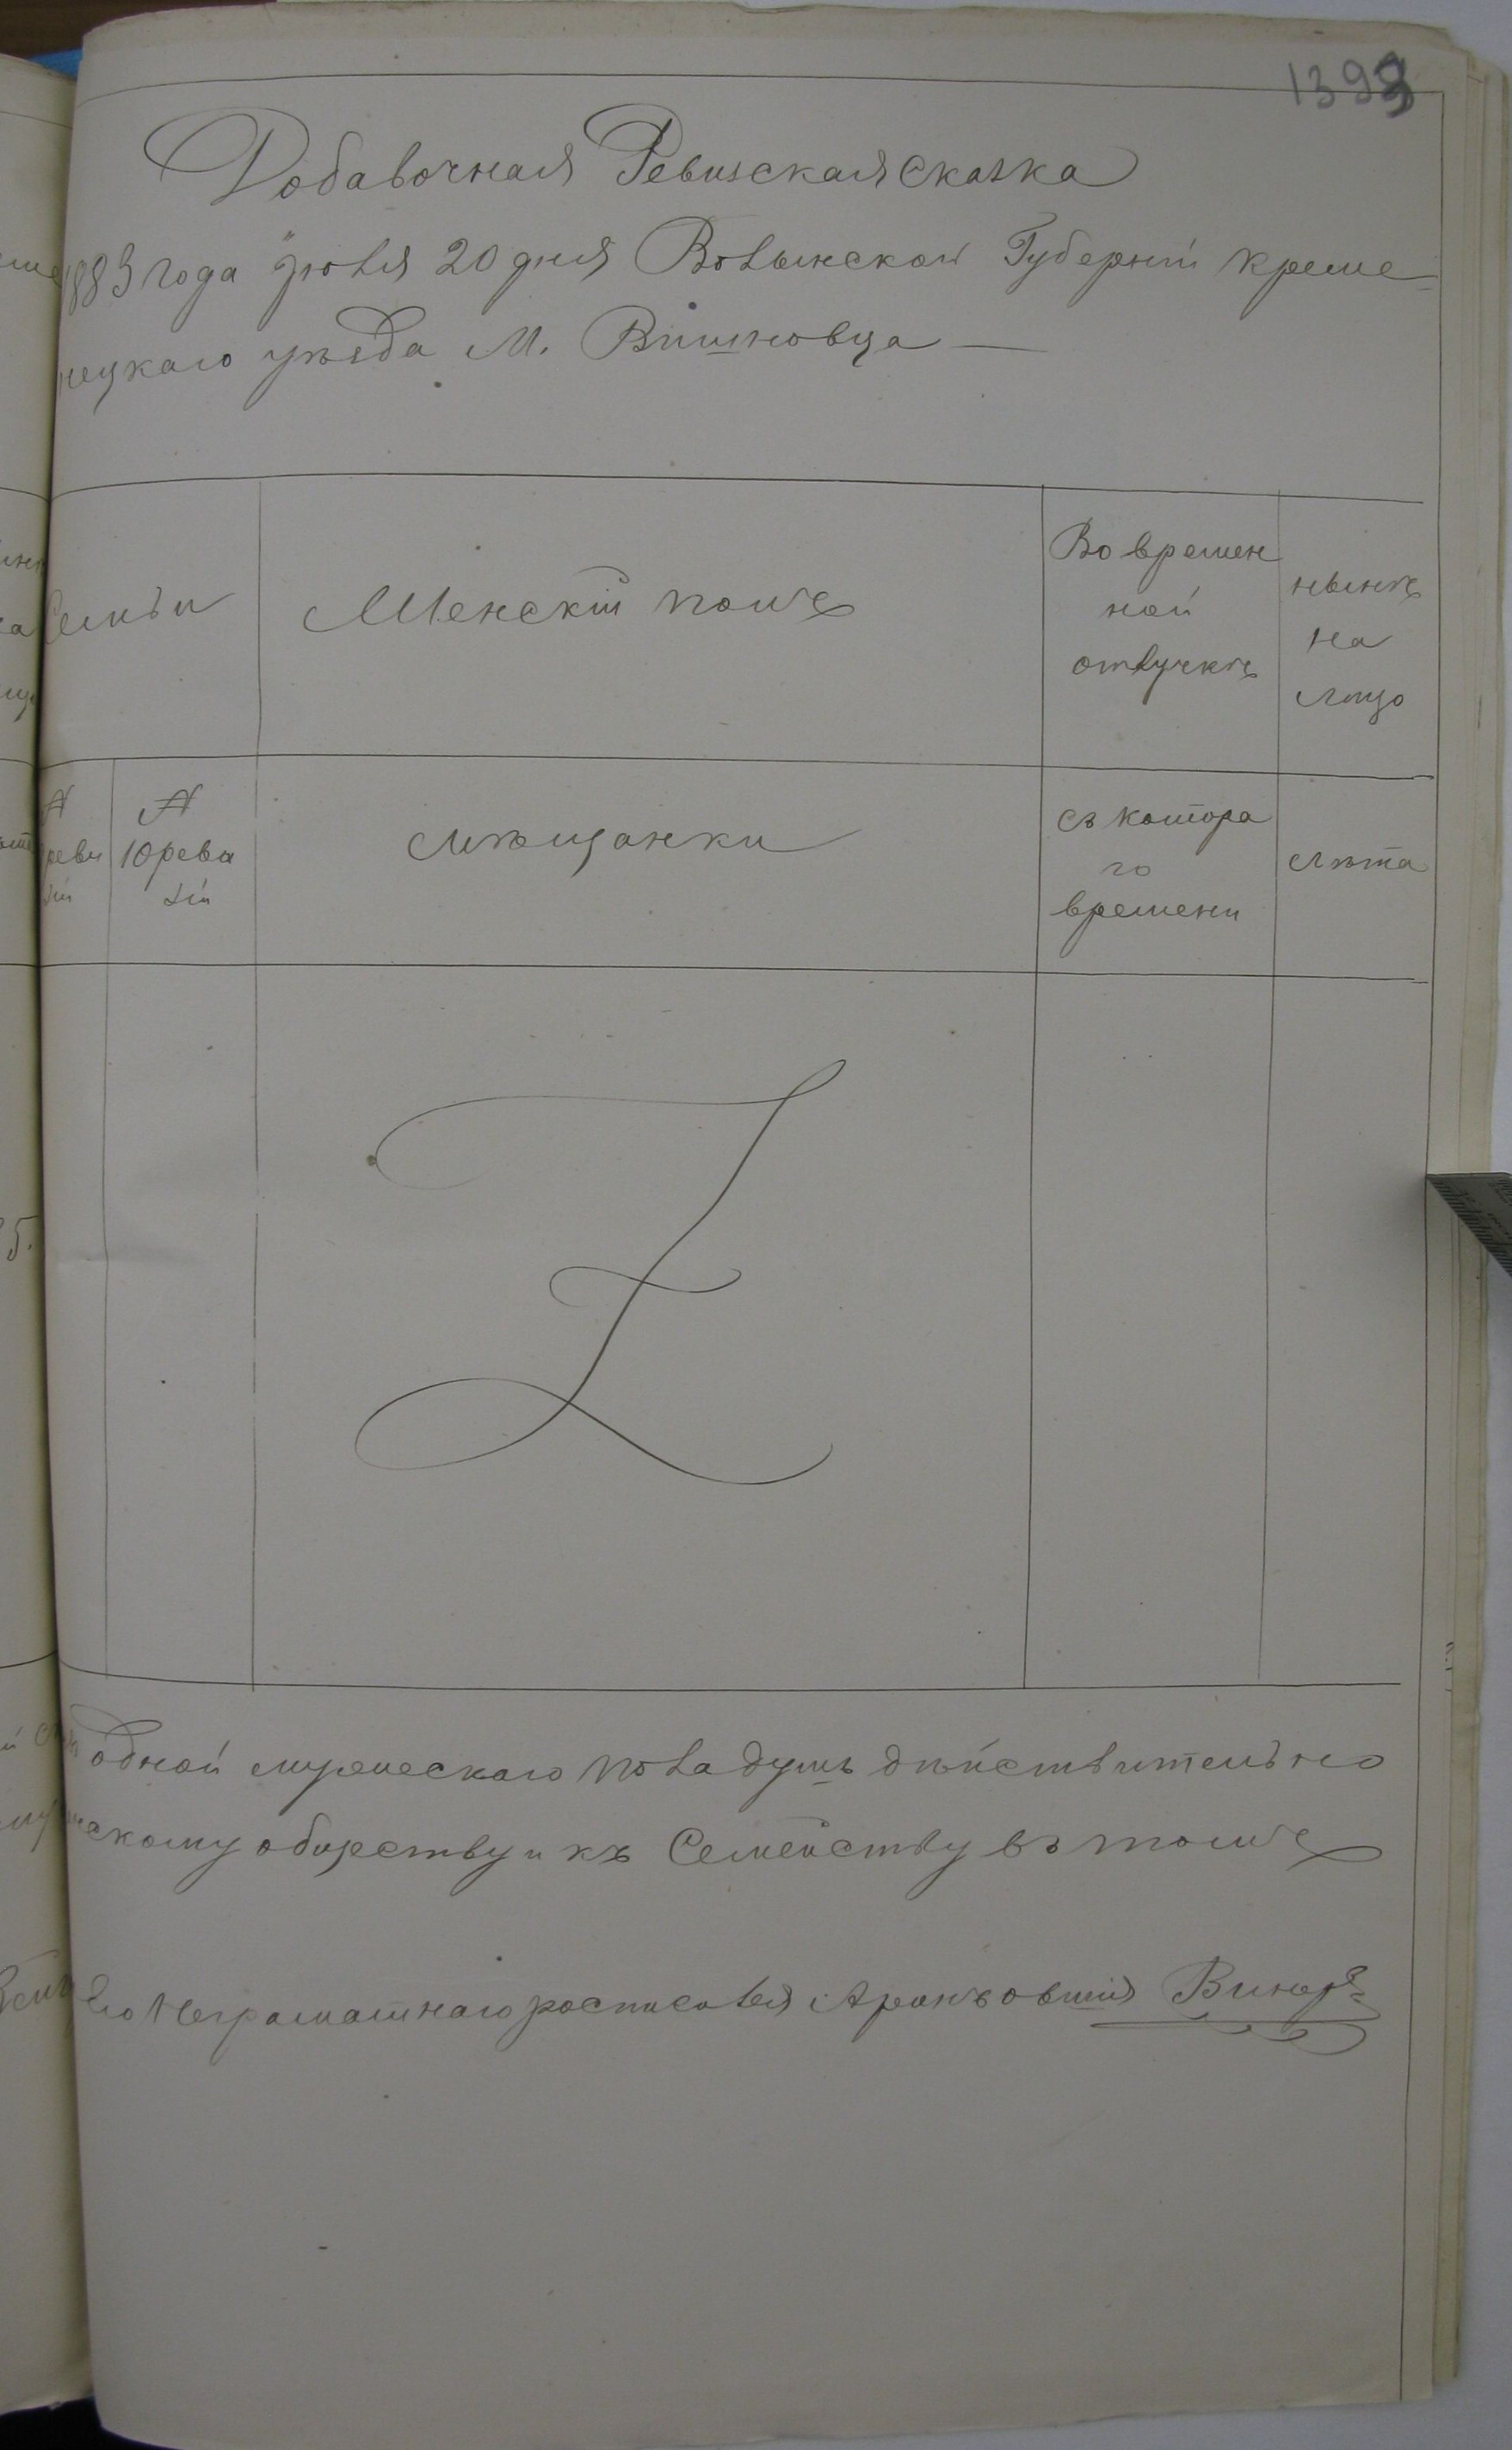 1393
Добавочная Ревизская сказка
1883 года Июля 20 дня Волынской Губерніи Креме-
нецкаго уѣзда М. Вишновца —
Семьи
Женскій полъ
Во времен
ной
отлучкѣ
нынѣ
на
лицо
№
реви
зіи
№
10 реви
зіи
мѣщанки
съ котора
го
времени
лѣта
одной мужескаго пола душѣ дѣйствительно
скому обществу и къ Семейству въ томъ
его Неграмотнаго росписался